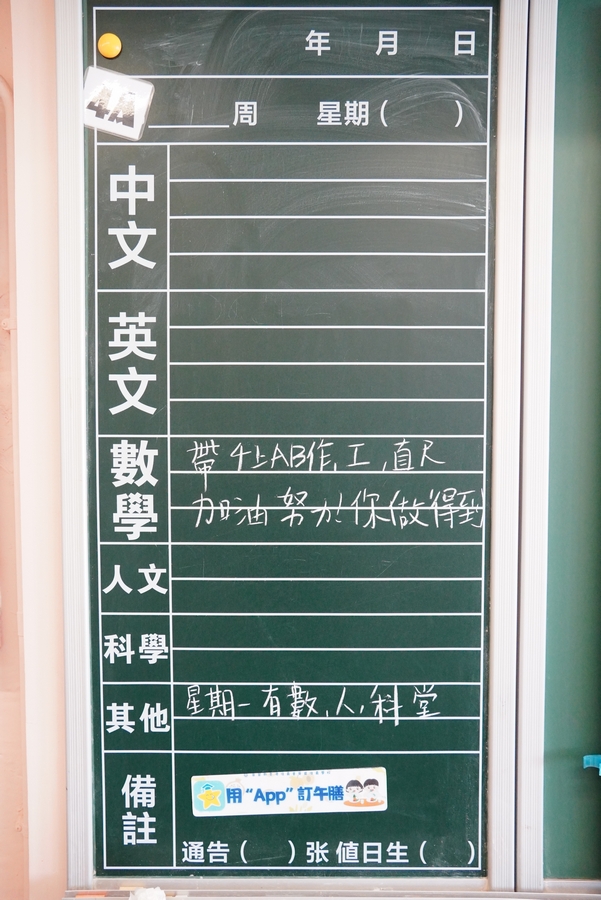 年 月 日
4A
周 星期( )
中文
英文
數學
帶 4上AB作,工,直尺
加油 努力! 你做得到
人文
科學
其他
星期一有數,人,科堂
備註
用“App”訂午膳
通告( )张 值日生( )